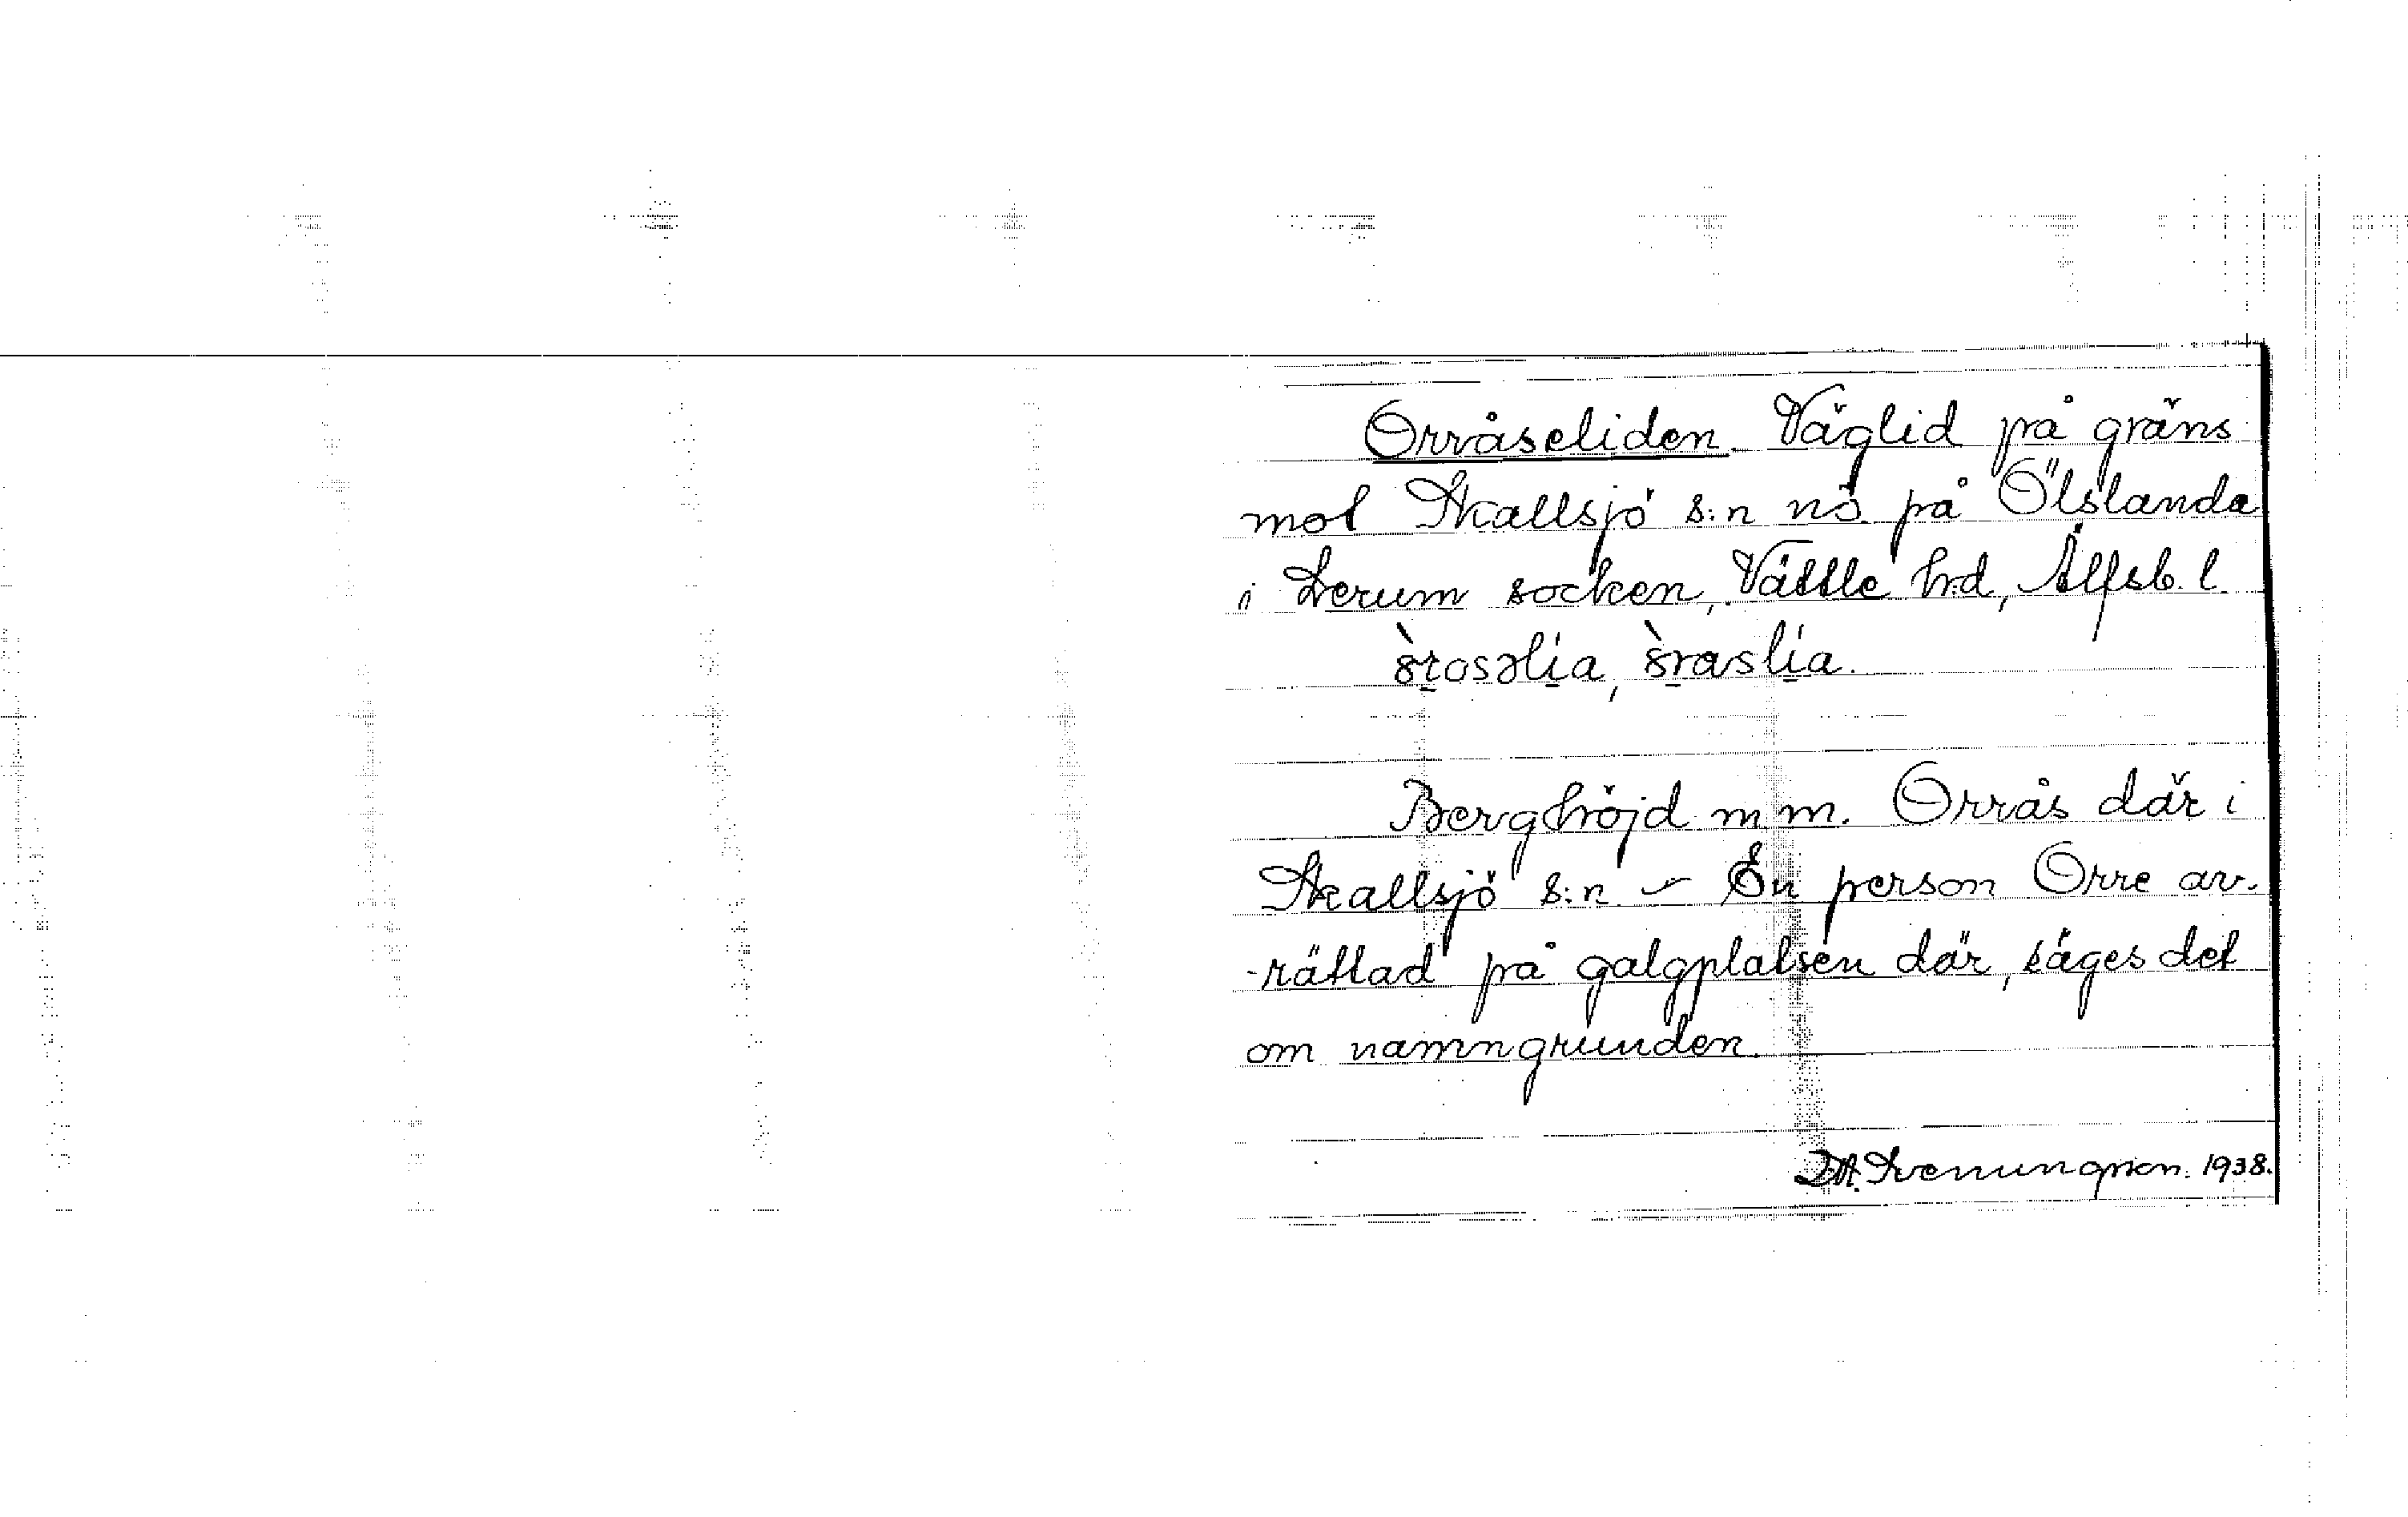 Orråseliden. Väglid på gräns
mot Skallsjö s:n nö. på Ölslanda
i Lerum socken, Vättle h:d, Älfsb. l.
Berghöjd m m. Orrås där i
Skallsjö s:n – En person Orre av-
-rättad på galgplatsen där, säges det
om namngrunden.
D.A. Svenungson. 1938.